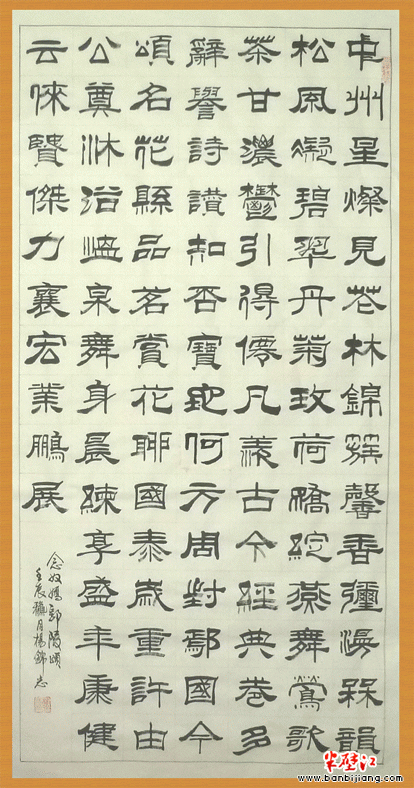 中州星燦見花林錦簇馨香彌海槑韻
松風凝碧翠丹菊玫荷嬌綻燕舞鶯歌
茶甘濃鬱引得僊凡羨古今經典巷多
辭譽詩讚知否寶地何方周封鄢國今
頌名花縣品茗賞花聊國泰歲重許由
公尊沐浴溫泉舞身晨練享盛年康健
云徠賢傑力襄宏業鵬展
念奴嬌鄢陵頌
壬辰月楊錦忠
半壁江
www.banbijiang.com